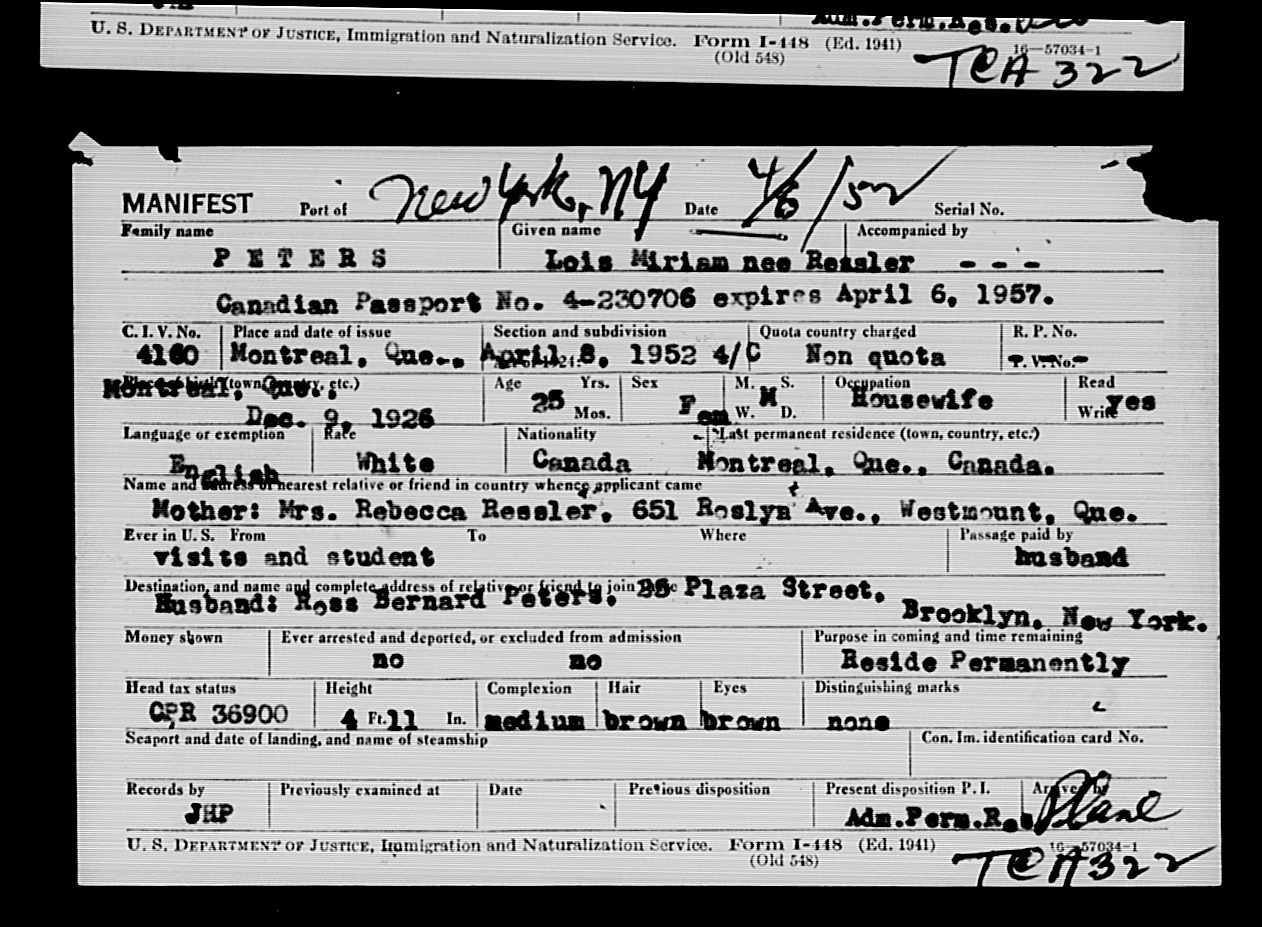 Adm.Perm.Res.
U. S. DEPARTMENT OF JUSTICE, Immigration and Naturalization Service. Form I-448 (Ed. 1941) 16—57034-1
(Old 548)
TCA 322
MANIFEST Port of New York, NY Date 4/8/52 Serial No.
Family name Given name Accompanied by
PETERS Lois Miriam nee Ressler - - -
Canadian Passport No. 4-230706 expires April 6, 1957.
C. I. V. No. Place and date of issue Section and subdivision Quota country charged R. P. No.
4160 Montreal, Que., April 8, 1952 4/C Non quota P. V. No.
(town, country, etc.) Age Yrs. Sex M. S. Occupation Read
Montreal, Que., 25 Mos. Fem W. M D. Housewife Write yes
Dec. 9, 1926
Language or exemption Race Nationality Last permanent residence (town, country, etc.)
English White Canada Montreal, Que., Canada.
Name and address of nearest relative or friend in country whence applicant came
Mother: Mrs. Rebecca Ressler, 651 Roslyn Ave., Westmount, Que.
Ever in U. S. From To Where Passage paid by
visits and student husband
Destination, and name and complete address of relative or friend to join
Husband: Ross Bernard Peters, Plaza Street,
Brooklyn, New York.
Money shown Ever arrested and deported, or excluded from admission Purpose in coming and time remaining
no no Reside Permanently
Head tax status Height Complexion Hair Eyes Distinguishing marks
CPR 36900 4 Ft. 11 In. medium brown brown none
Seaport and date of landing, and name of steamship Con. Im. identification card No.
Records by Previously examined at Date Previous disposition Present disposition P. I. Arrived by
JHP Adm.Perm.Res Plane
U. S. DEPARTMENT OF JUSTICE, Immigration and Naturalization Service. Form I-448 (Ed. 1941) 16—57034-1
(Old 548)
TCA 322